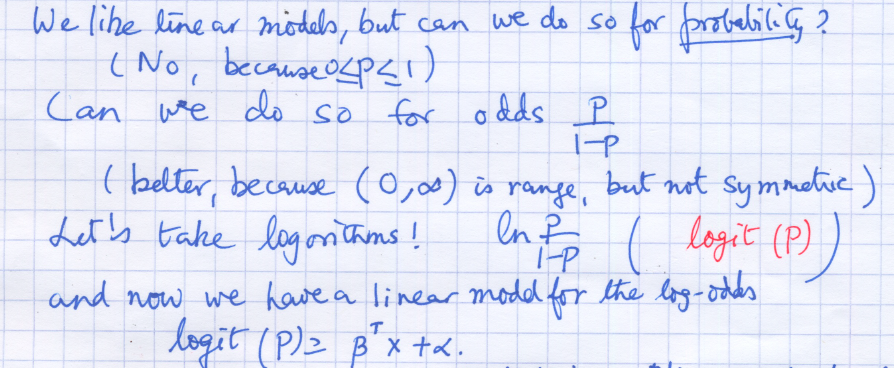 We like linear models, but can we do so for probability?
(No, because 0≤p≤1)
Can we do so for odds p/1-p
(better, because (0,∞) is range, but not symmetric)
Let's take logorithms! ln p/1-p (logit (p))
and now we have a linear model for the log-odds
logit (p) = βᵀx + α.